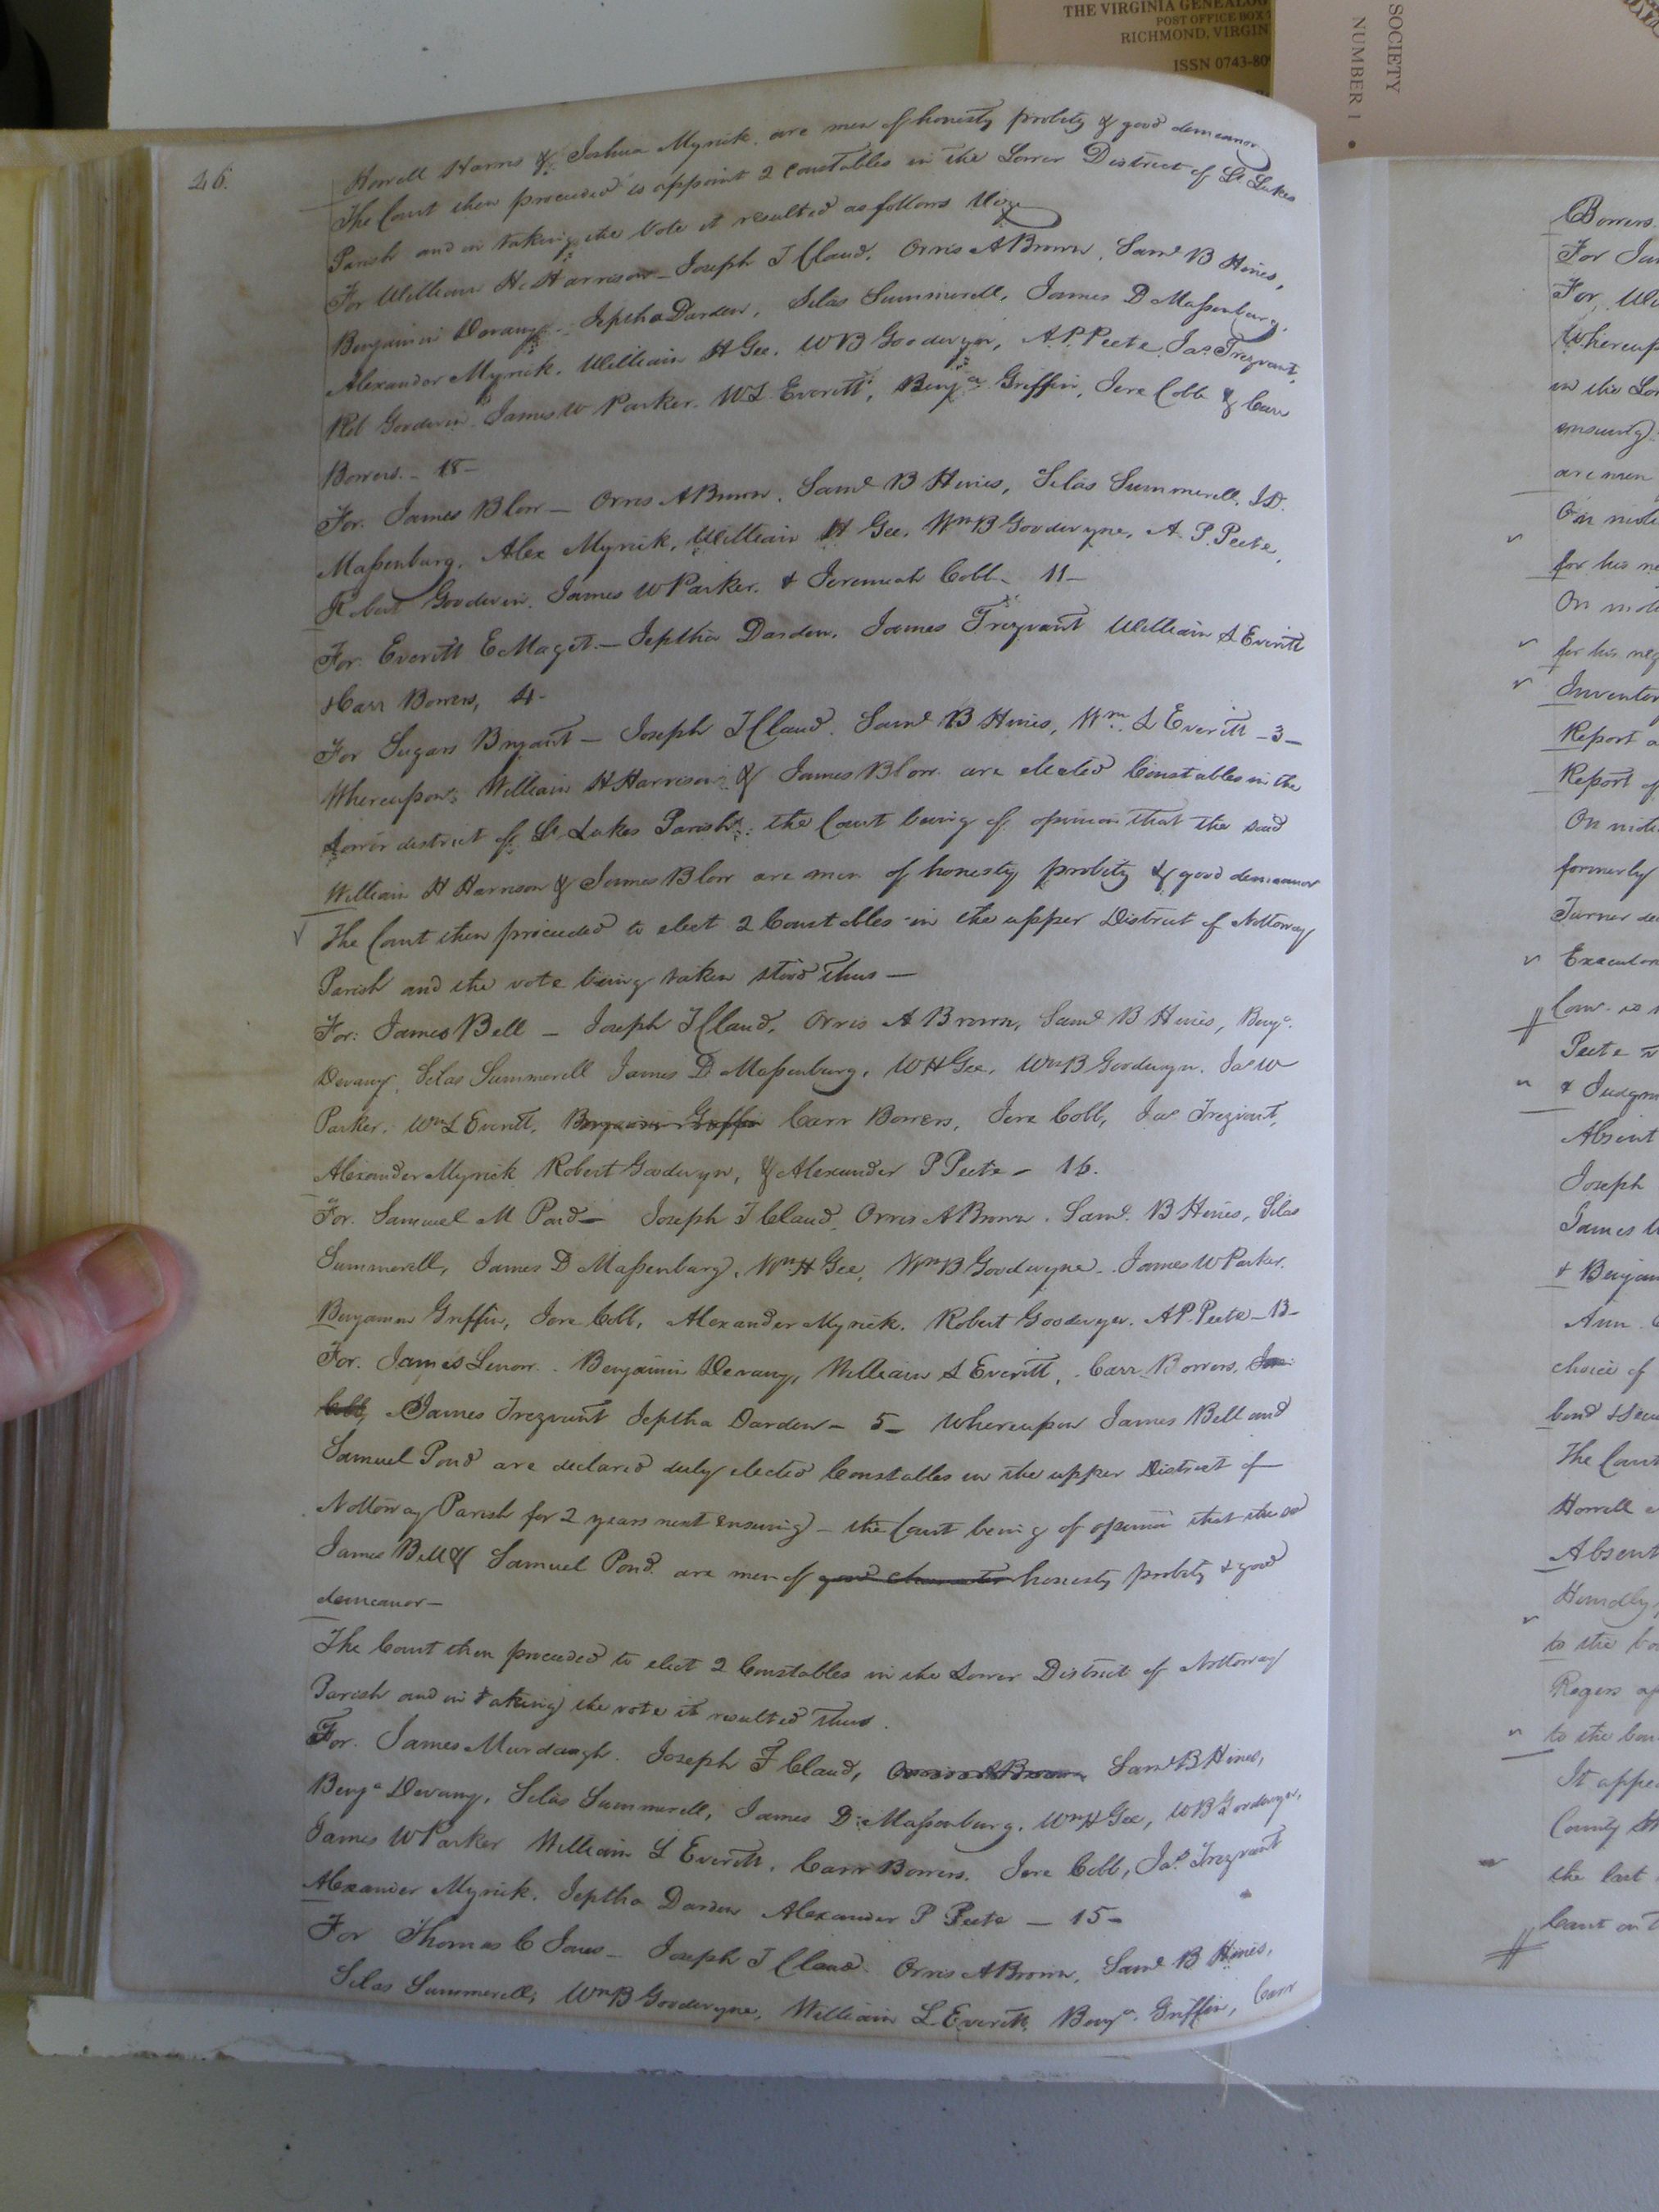 THE VIRGINIA GENEALOG
POST OFFICE BOX 7
RICHMOND, VIRGIN
ISSN 0743-80
SOCIETY
NUMBER 1
46.
Howell Harris & Joshua Myrick, are men of honesty probity & good demeanor
The Court then proceeded to appoint 2 Constables in the Lower District of St Lukes
Parish and on taking the Vote it resulted as follows Viz
For William H. Harrison – Joseph T Claud, Orris A Brown, Saml B Hines,
Benjamin Devany, Jeptha Darden, Silas Summerell, James D Maßenburg,
Alexander Myrick, William H Gee, W B Goodwyn, A. P. Peete, Jas Trezvant,
Rob Goodwin James W Parker. W L Everitt, Benja Griffin, Jere Cobb & Carr
Bowers – 18 –
For. James Blow – Orris A Brown, Saml B Hines, Silas Summerell, J D.
Maßenburg, Alex Myrick, William H Gee, Wm B Goodwyne, A. P. Peete,
Robert Goodwin, James W Parker, & Jeremiah Cobb – 11 –
For Everitt E Maget. – Jeptha Darden, James Trezvant William L Everitt
& Carr Bowers, 4 –
For Sugars Bryant – Joseph T Claud, Saml B Hines, Wm L Everitt – 3 –
Whereupon, William H Harrison & James Blow are elected Constables in the
Lower district of St. Lukes Parish: the Court being of opinion that the said
William H Harrison & James Blow are men of honesty probity & good demeanor
√ The Court then proceeded to elect 2 Constables in the upper District of Nottoway
Parish and the vote being taken stood thus –
For: James Bell – Joseph T Claud, Orris A Brown, Saml B Hines, Benja.
Devany, Silas Summerell James D Maßenburg, W H Gee, Wm B Goodwyn. Jas W
Parker, Wm L Everitt, Benjamin Griffin Carr Bowers, Jere Cobb, Jas Trezvant,
Alexander Myrick Robert Goodwyn, & Alexander P Peete – 16.
For. Samuel M Pond – Joseph T Claud, Orris A Brown, Saml. B Hines, Silas
Summerell, James D Maßenburg, Wm H Gee, Wm B Goodwyne, James W Parker.
Benjamin Griffin, Jere Cobb, Alexander Myrick, Robert Goodwyn. A P Peete – 13 –
For. James Lenow. Benjamin Devany, William L Everitt, Carr Bowers, Jere
Cobb, James Trezvant Jeptha Darden – 5 – Whereupon James Bell and
Samuel Pond are declared duly elected Constables in the upper District of
Nottoway Parish for 2 years next ensuing – the Court being of opinion that the sd
James Bell & Samuel Pond are men of good character honesty probity & good
demeanor –
The Court then proceeded to elect 2 Constables in the Lower District of Nottoway
Parish and in taking the vote it resulted thus.
For. James Murdaugh. Joseph T Claud, Orris A Brown Saml B Hines,
Benja Devany, Silas Summerell, James D. Maßenburg, Wm H Gee, W B Goodwyn,
James W Parker William L Everitt, Carr Bowers, Jere Cobb, Jas. Trezvant
Alexander Myrick, Jeptha Darden Alexander P Peete – 15 –
For Thomas C Jones – Joseph T Claud. Orris A Brown, Saml B Hines,
Silas Summerell, Wm B Goodwyne, William L Everitt, Benja. Griffin, Carr
Bowers
For
For
Whereup
in the
ensuing
are men
On moti
for his
On moti
for his neg
Inventor
Report
Report of
On moti
formerly
Turner
Executor
Peete
& Judgm
Absent
Joseph
James
& Benjam
Ann
choice of
bond
The Court
Howell
Absent
to the
Rogers
to the
It appe
County
the last
Court